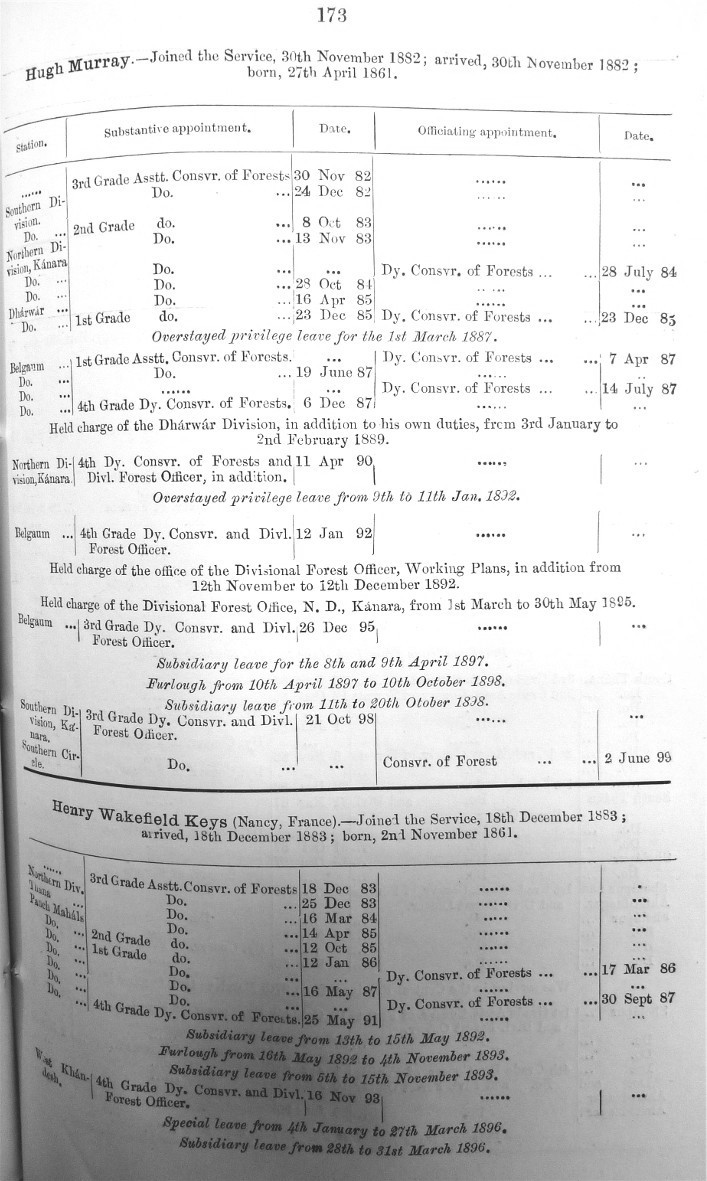 173
Hugh Murray.—Joined the Service, 30th November 1882; arrived, 30th November 1882;
born, 27th April 1861.
Station. Substantive appointment. Date. Officiating appointment. Date.
...... 3rd Grade Asstt. Consvr. of Forests 30 Nov 82 ...... ...
Southern Di- Do. ... 24 Dec 82 ...... ...
vision. 2nd Grade do. ... 8 Oct 83 ...... ...
Do. ... Do. ... 13 Nov 83 ...... ...
Northern Di-
vision, Kánara Do. ... ... Dy. Consvr. of Forests ... ... 28 July 84
Do. ... Do. ... 28 Oct 84 ...... ...
Do. ... Do. ... 16 Apr 85 ...... ...
Dhárwár ... 1st Grade do. ... 23 Dec 85 Dy. Consvr. of Forests ... ... 23 Dec 85
Do. ...
Overstayed privilege leave for the 1st March 1887.
Belgaum ... 1st Grade Asstt. Consvr. of Forests. ... Dy. Consvr. of Forests ... ... 7 Apr 87
Do. ... Do. ... 19 June 87 ...... ...
Do. ... ...... ... Dy. Consvr. of Forests ... ... 14 July 87
Do. ... 4th Grade Dy. Consvr. of Forests. 6 Dec 87 ...... ...
Held charge of the Dhárwár Division, in addition to his own duties, from 3rd January to
2nd February 1889.
Northern Di- 4th Dy. Consvr. of Forests and 11 Apr 90 ...... ...
vision, Kánara. Divl. Forest Officer, in addition.
Overstayed privilege leave from 9th to 11th Jan. 1892.
Belgaum ... 4th Grade Dy. Consvr. and Divl. 12 Jan 92 ...... ...
Forest Officer.
Held charge of the office of the Divisional Forest Officer, Working Plans, in addition from
12th November to 12th December 1892.
Held charge of the Divisional Forest Office, N. D., Kánara, from 1st March to 30th May 1895.
Belgaum ... 3rd Grade Dy. Consvr. and Divl. 26 Dec 95 ...... ...
Forest Officer.
Subsidiary leave for the 8th and 9th April 1897.
Furlough from 10th April 1897 to 10th October 1898.
Subsidiary leave from 11th to 20th Otober 1898.
Southern Di- 3rd Grade Dy. Consvr. and Divl. 21 Oct 98 ...... ...
vision, Ká- Forest Officer.
nara.
Southern Cir- Do. ... ... Consvr. of Forest ... ... 2 June 99
cle.
Henry Wakefield Keys (Nancy, France).—Joined the Service, 18th December 1883;
arrived, 18th December 1883; born, 2nd November 1861.
...... 3rd Grade Asstt. Consvr. of Forests 18 Dec 83 ...... .
Northern Div. Do. ... 25 Dec 83 ...... ...
Thána Do. ... 16 Mar 84 ...... ...
Panch Maháls Do. ... 14 Apr 85 ...... ...
Do. ... 2nd Grade do. ... 12 Oct 85 ...... ...
Do. ... 1st Grade do. ... 12 Jan 86 ...... ...
Do. ... Do. ... ... Dy. Consvr. of Forests ... ... 17 Mar 86
Do. ... Do. ... 16 May 87 ...... ...
Do. ... Do. ... ... Dy. Consvr. of Forests ... ... 30 Sept 87
Do. ... 4th Grade Dy. Consvr. of Forests. 25 May 91 ...... ...
Subsidiary leave from 13th to 15th May 1892.
Furlough from 16th May 1892 to 4th November 1893.
Subsidiary leave from 5th to 15th November 1893.
West Khán- 4th Grade Dy. Consvr. and Divl. 16 Nov 93 ...... ...
desh. Forest Officer.
Special leave from 4th January to 27th March 1896.
Subsidiary leave from 28th to 31st March 1896.